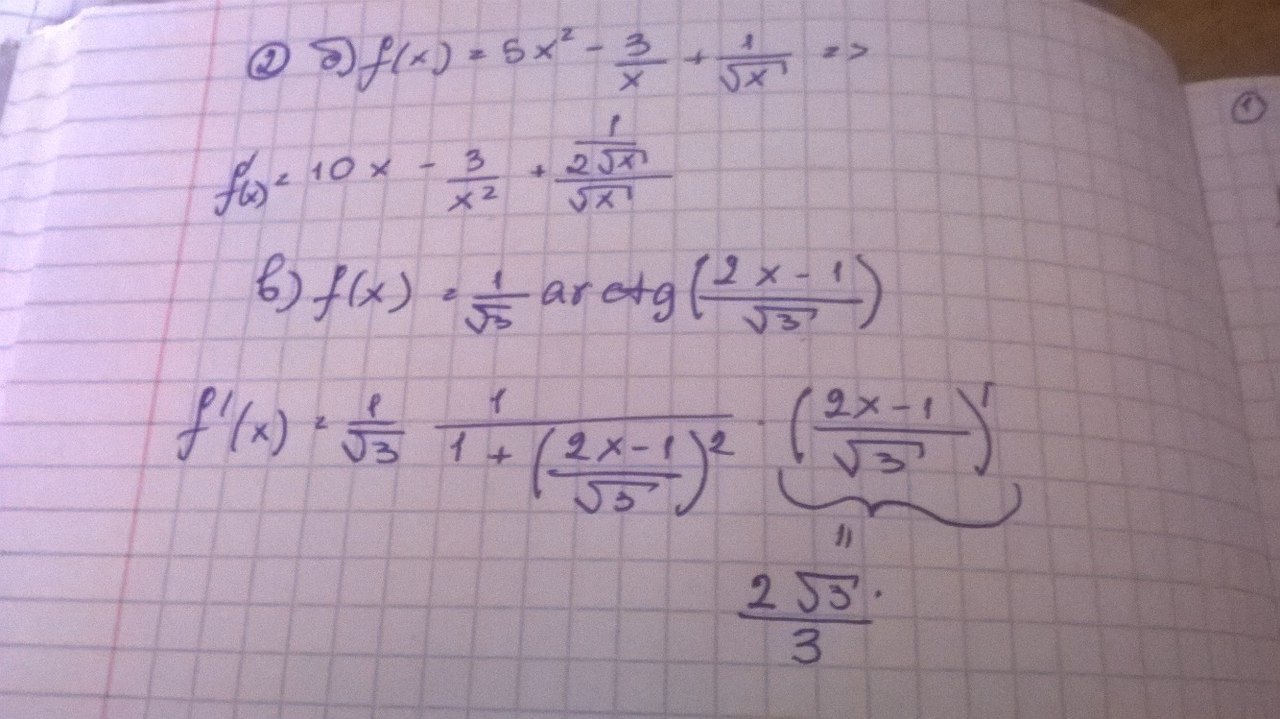 ② б) f(x) = 5x² - 3/x + 1/√x =>
f'(x) = 10x - 3/x² + (1/(2√x))/√x
в) f(x) = 1/√3 arctg((2x-1)/√3)
f'(x) = 1/√3 1/(1+((2x-1)/√3)²) · ((2x-1)/√3)'
=
2√3/3 ·
①